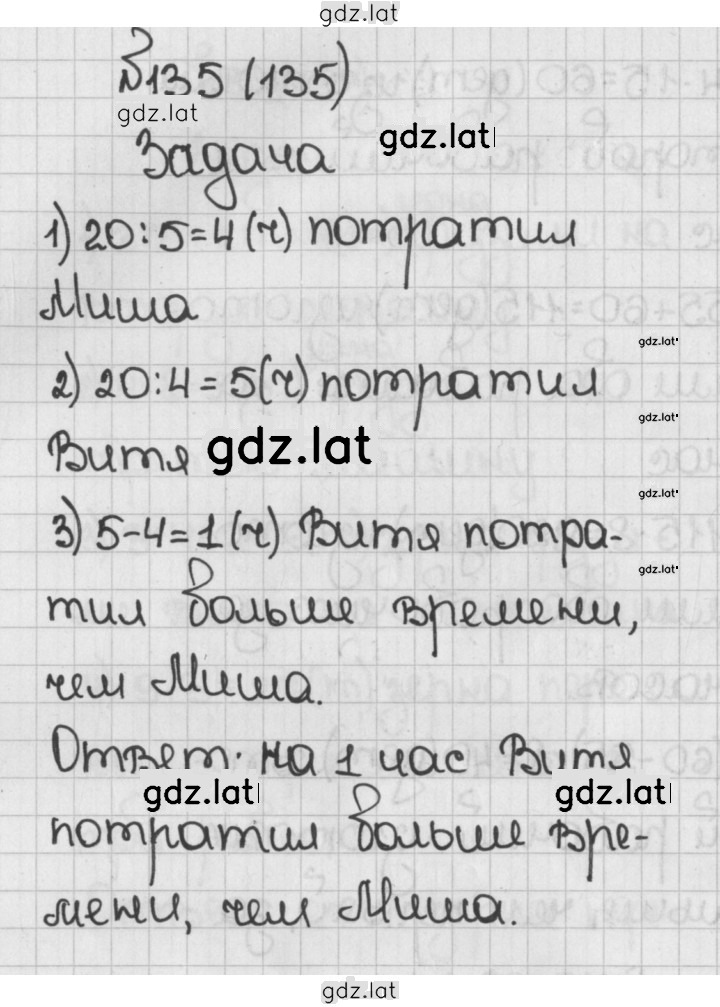 gdz.lat
№135 (135)
gdz.lat
gdz.lat
Задача
1) 20:5=4(ч) потратил
Миша
gdz.lat
2) 20:4=5(ч) потратил
gdz.lat
Витя gdz.lat
gdz.lat
3) 5-4=1(ч) Витя потра-
gdz.lat
тил больше времени,
чем Миша.
Ответ: на 1 час Витя
gdz.lat gdz.lat
потратил больше вре-
мени, чем Миша.
gdz.lat